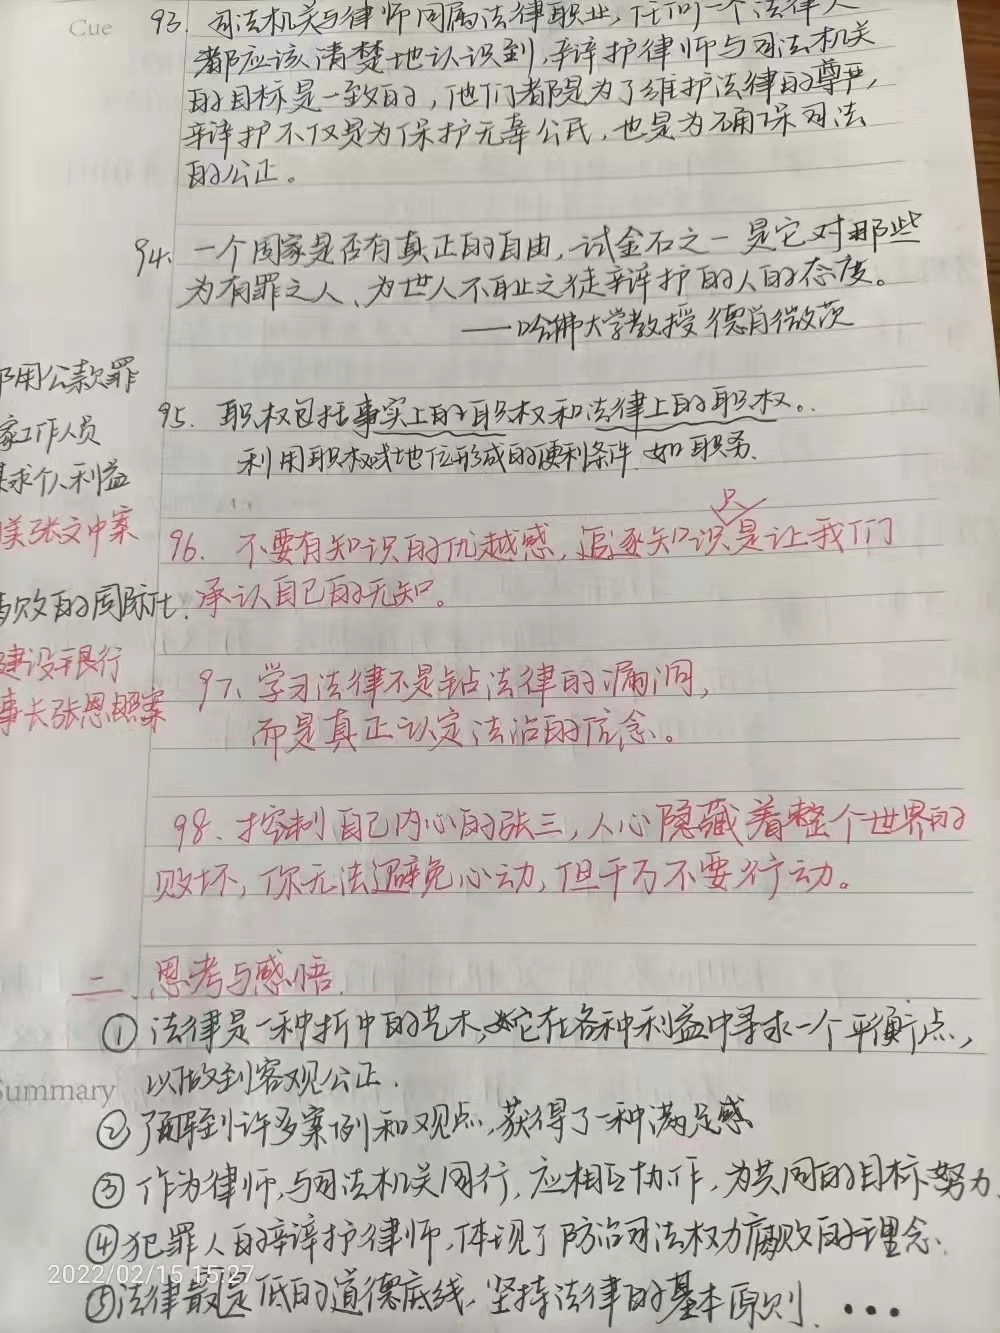 Cue
93. 司法机关与律师同属法律职业,任何一个法律人
都应该清楚地认识到,辩护律师与司法机关
的目标是一致的,他们都是为了维护法律的尊严,
辩护不仅是为保护无辜公民,也是为确保司法
的公正。
94. 一个国家是否有真正的自由,试金石之一是它对那些
为有罪之人、为世人不耻之徒辩护的人的态度。
——哈佛大学教授德肖微茨
95. 职权包括事实上的职权和法律上的职权。
利用职权或地位形成的便利条件,如职务.
只
96. 不要有知识的优越感,追逐知识是让我们
承认自己的无知。
97. 学习法律不是钻法律的漏洞,
而是真正认定法治的信念。
98. 控制自己内心的张三,人心隐藏着整个世界的
败坏,你无法避免心动,但千万不要行动。
用公款罪
家工作人员
求个人利益
美张文中案
败的周际社
建设银行
事长张恩照案
二、思考与感悟.
① 法律是一种折中的艺术,它在各种利益中寻求一个平衡点,
以做到客观公正.
Summary
② 了解到许多案例和观点,获得了一种满足感
③ 作为律师,与司法机关同行,应相互协作,为共同的目标努力.
④ 犯罪人的辩护律师,体现了防治司法权力腐败的理念.
⑤ 法律是最低的道德底线,坚持法律的基本原则. •••
2022/02/15 15:27